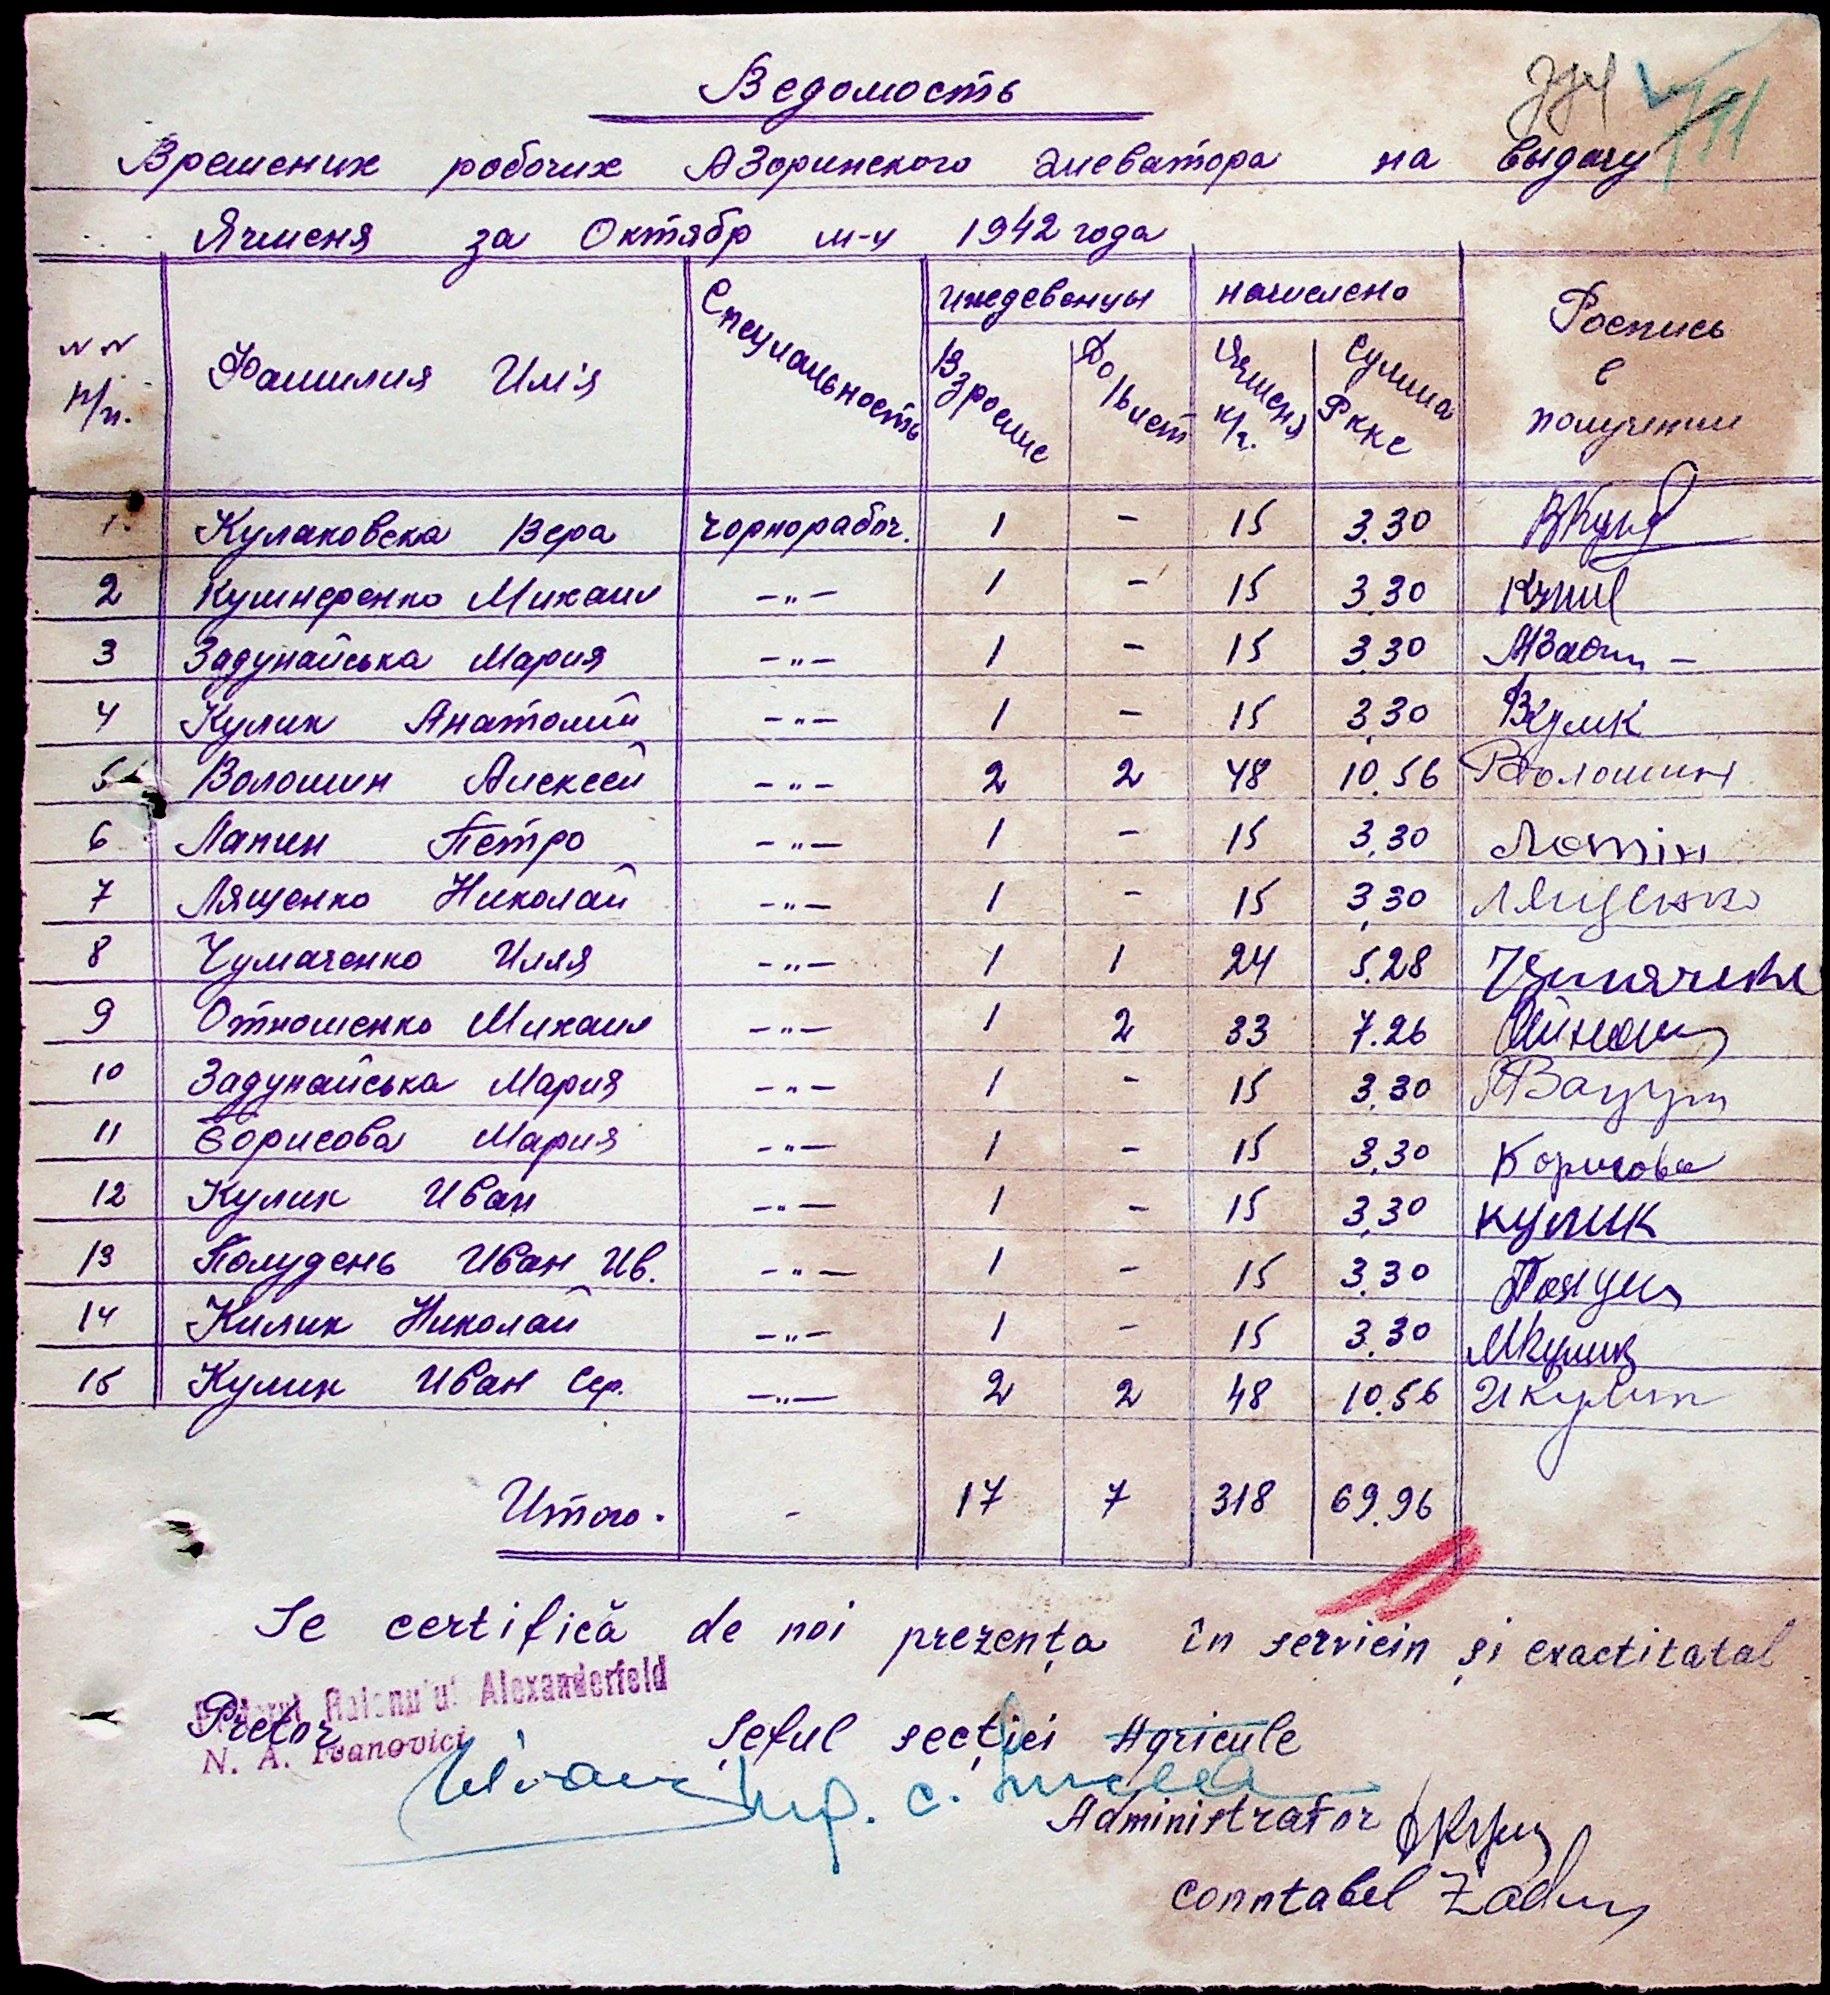 Ведомость
Времених робочих Азоринского элеватора на выдачу
Ячменя за Октябр м-ц 1942 года
NN п/п. Фамилия Им'я Специальность ижедевенцы начислено Роспись в получении
Взросше До 16 лет Ячменя к/г. Сумма Ркке
1. Кулаковска Вера чорнорабоч. 1 - 15 3.30 ВКул
2 Кушнеренко Михаил -"- 1 - 15 3.30 Кушн
3 Задунайська Мария -"- 1 - 15 3.30 МЗадун -
4 Кулик Анатолий -"- 1 - 15 3.30 Вкулик
5 Волошин Алексей -"- 2 2 48 10.56 Волошин
6 Лапин Петро -"- 1 - 15 3.30
7 Лященко Николай -"- 1 - 15 3.30 Лященко
8 Чумаченко Илля -"- 1 1 24 5.28
9 Отношенко Михаил -"- 1 2 33 7.26
10 Задунайська Мария -"- 1 - 15 3.30
11 Борисова Мария -"- 1 - 15 3.30 Корисова
12 Кулик Иван -"- 1 - 15 3.30 кулик
13 Полудень Иван Ив. -"- 1 - 15 3.30
14 Килик Николай -"- 1 - 15 3.30 Мкулик
15 Кулик Иван Сер. -"- 2 2 48 10.56 Икулик
Итого. - 17 7 318 69.96
Se certifică de noi prezența în serviciu și exactitatal
Raionului Alexanderfeld
Pretor
N. A. Ivanovici
Șeful secției Agricole
Administrator
Conntabel Zadun